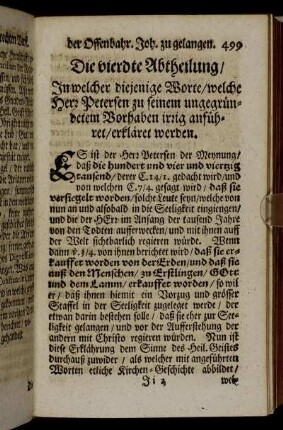 der Offenbahr. Joh. zu gelangen. 499
Die vierdte Abtheilung/
In welcher diejenige Worte/welche
Herr Petersen zu seinem ungegrün-
detem Vorhaben irrig anfüh-
ret/erkläret werden.
ES ist der Herr Petersen der Meynung/
daß die hundert und vier und vierzig
tausend/derer C. 14/1. gedacht wird/und
von welchen C. 7/4. gesagt wird/daß sie
versiegelt worden/solche Leute seyn/welche von
nun an und alsobald in die Seeligkeit eingiengen/
und die der HErr im Anfang der tausend Jahre
von den Todten aufferwecken/und mit ihnen auff
der Welt sichtbarlich regieren würde. Wenn
dann v. 3/4. von ihnen berichtet wird/daß sie er-
kauffet worden von der Erden/und daß sie
auß den Menschen/zu Erstlingen/GOtt
und dem Lamm/erkauffet worden/so wil
er/daß ihnen hiemit ein Vorzug und grösser
Staffel in der Seeligkeit zugeleget werde/der
etwan darin bestehen solle/daß sie eher zur See-
ligkeit gelangen/und vor der Aufferstehung der
andern mit Christo regieren würden. Nun ist
diese Erklährung dem Sinne des Heil. Geistes
durchauß zuwider/als welcher mit angeführten
Worten etliche Kirchen-Geschichte abbildet/
Ji 2 wel-